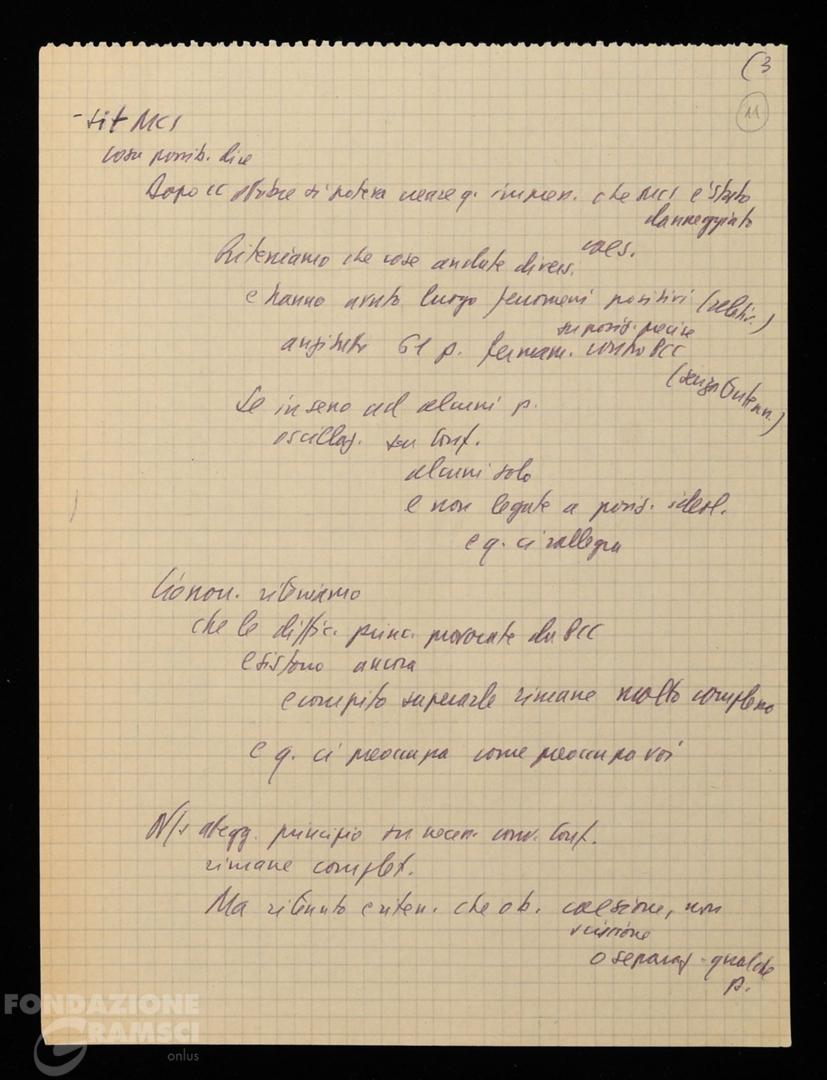 (3
11
- sit MCI
cosa possib. dire
Dopo CC ottobre si poteva avere q. impress. che MCI è stato
danneggiato
coes.
Riteniamo che cose andate divers.
e hanno avuto luogo fenomeni positivi (relativ.)
su posiz. precise
anzitutto 61 p. fermam. contro PCC
(senza tentenn.)
Se in seno ad alcuni p.
oscillaz. su Conf.
alcuni solo
e non legate a posiz. ideol.
e q. ci rallegra
Cionon. riteniamo
che le diffic. princ. provocate da PCC
esistono ancora
e compito superarle rimane molto complesso
e q. ci preoccupa come preoccupa voi
N/s ategg. principio su necess. conv. Conf.
rimane complet.
Ma ritenuto e riten. che ob. coesione, non
scissione
o separaz. qualche
p.
FONDAZIONE
GRAMSCI
onlus